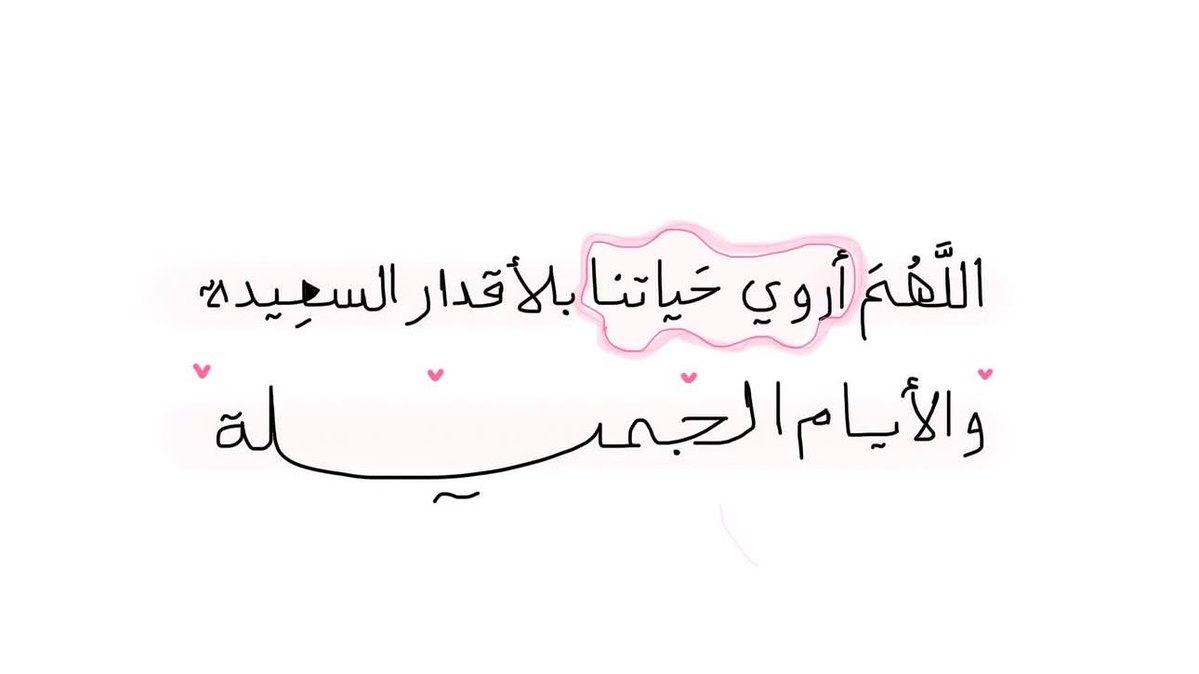 اللَّهُمَ أروي حَياتنا بلأقدار السعِيدة
والأيام الجميلة